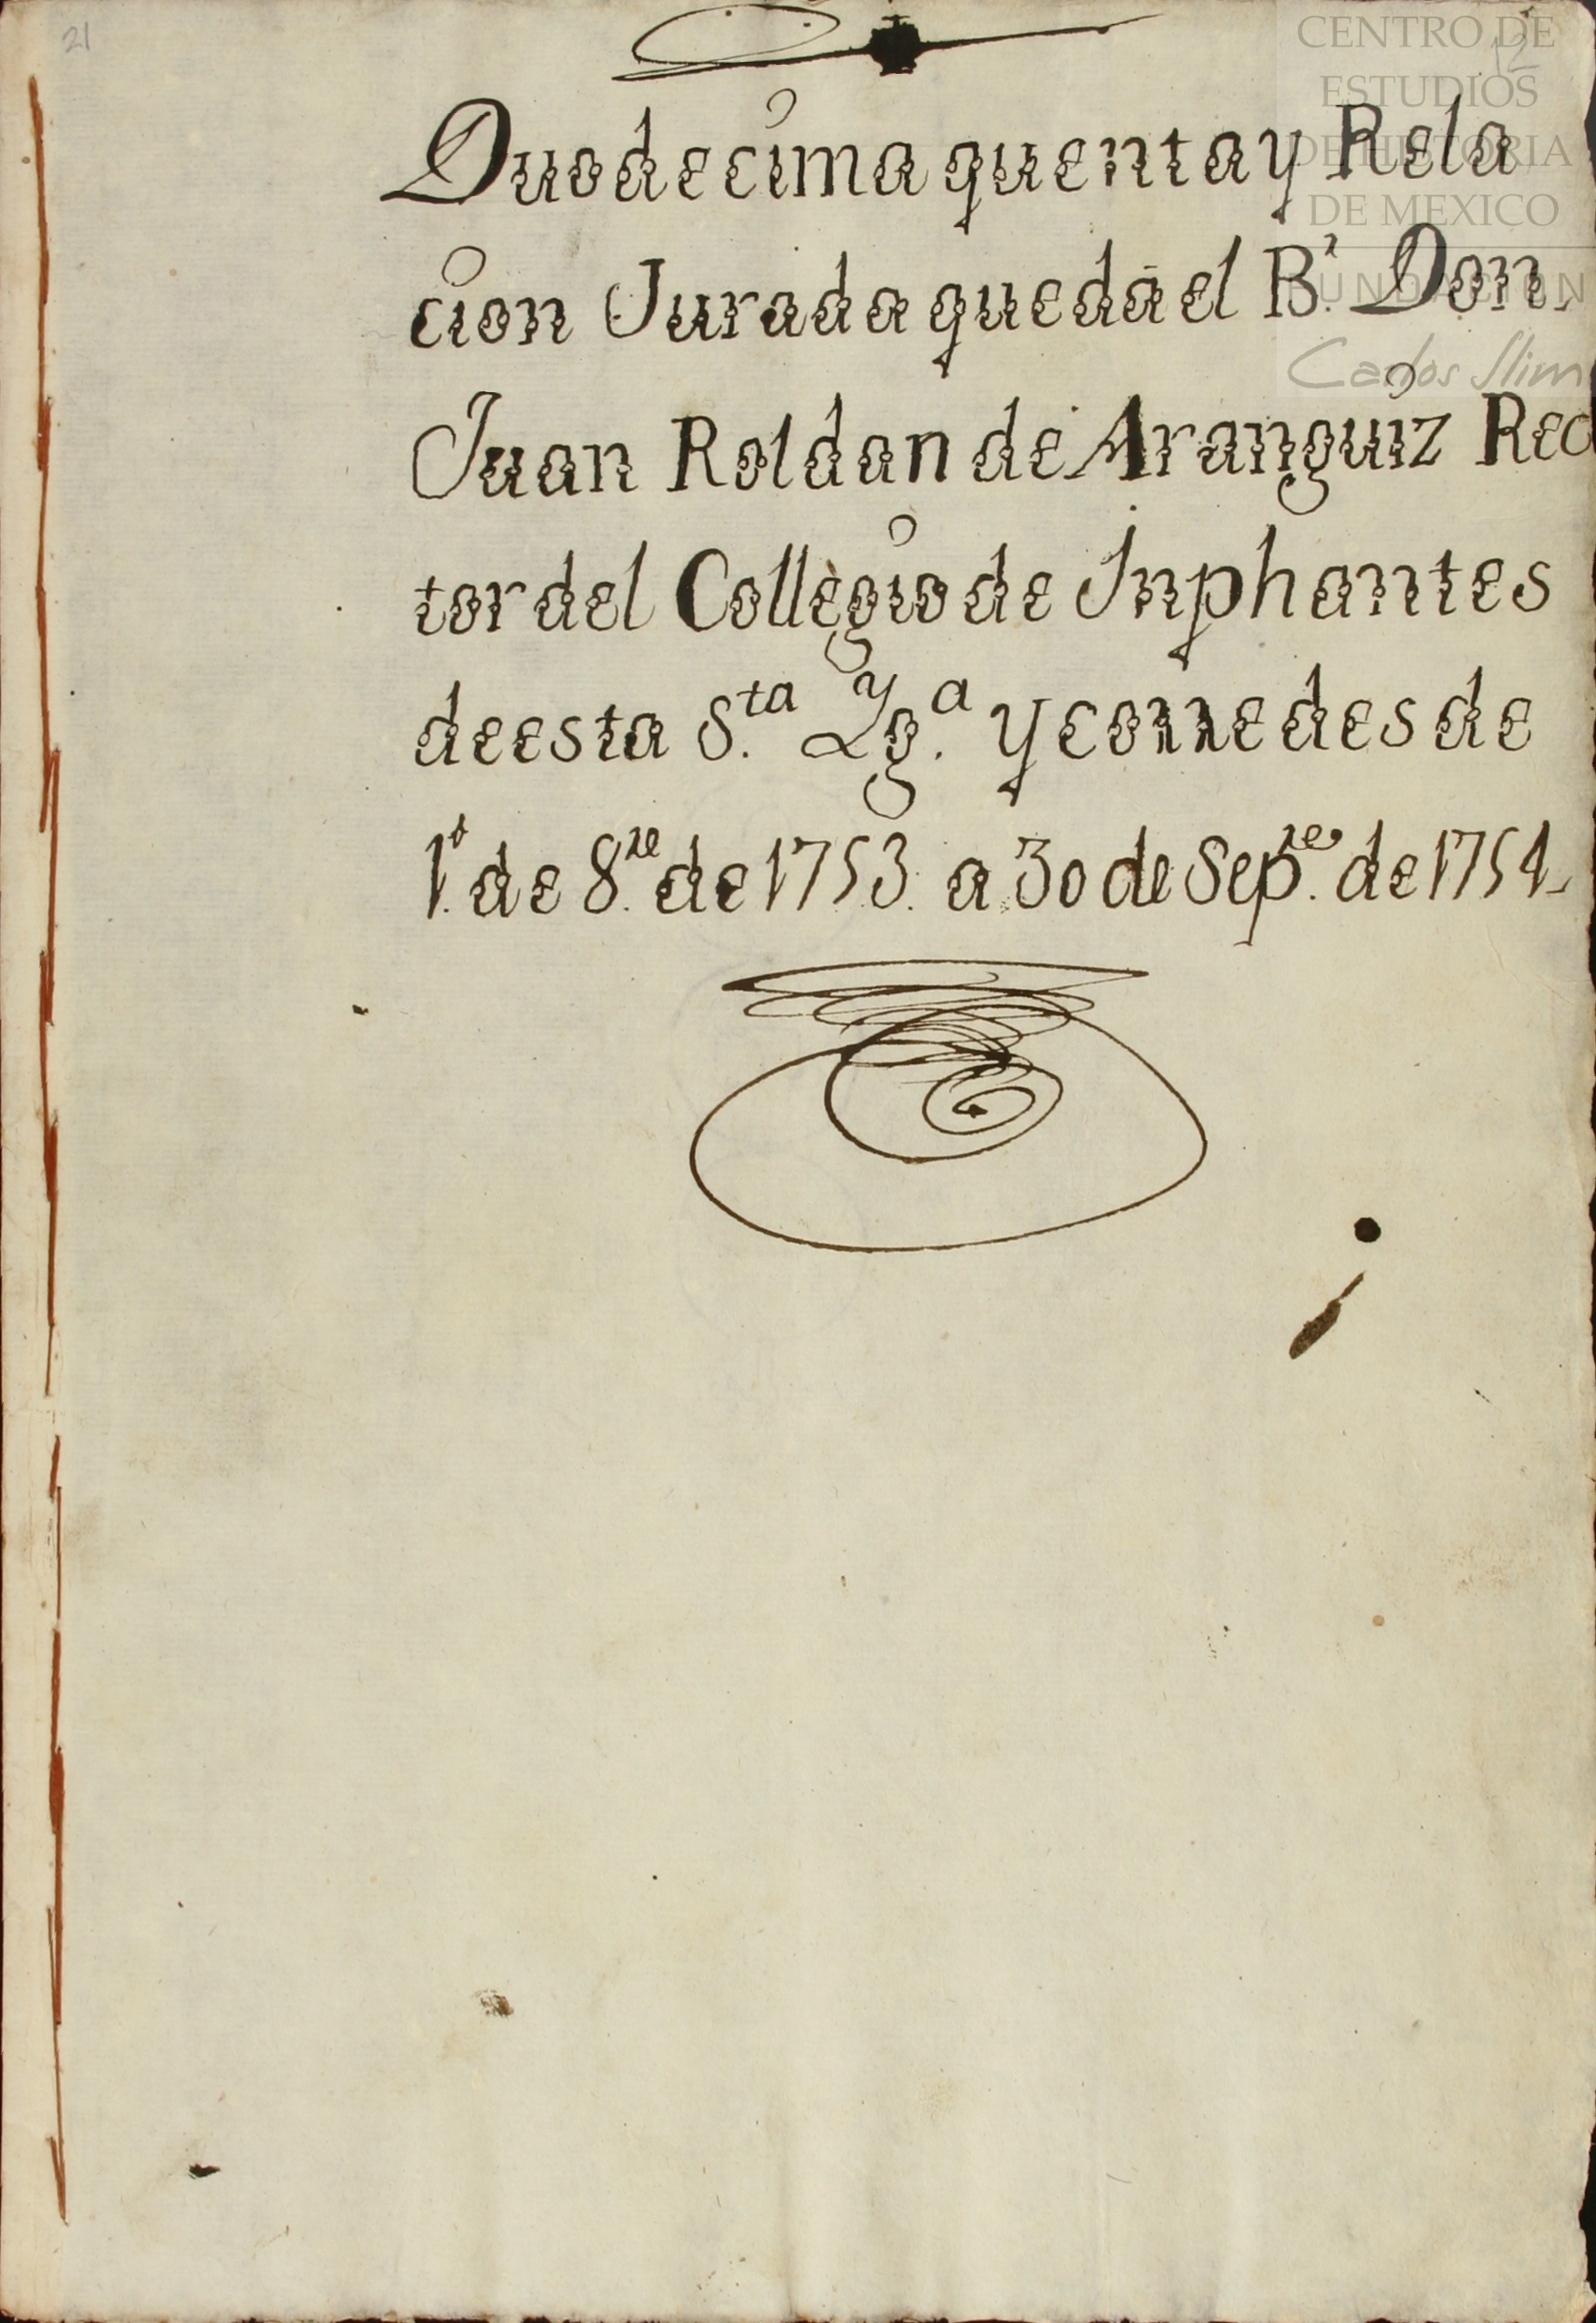 21
12
CENTRO DE
ESTUDIOS
DE HISTORIA
DE MEXICO
FUNDACION
Carlos Slim
Duodecima quenta y Rela
cion Jurada que dà el B.r Don
Juan Roldan de Aranguiz Rec
tor del Collegio de Inphantes
de esta S.ta Yg.a y corre desde
1.o de 8.re de 1753. a 30 de Sep.re de 1754